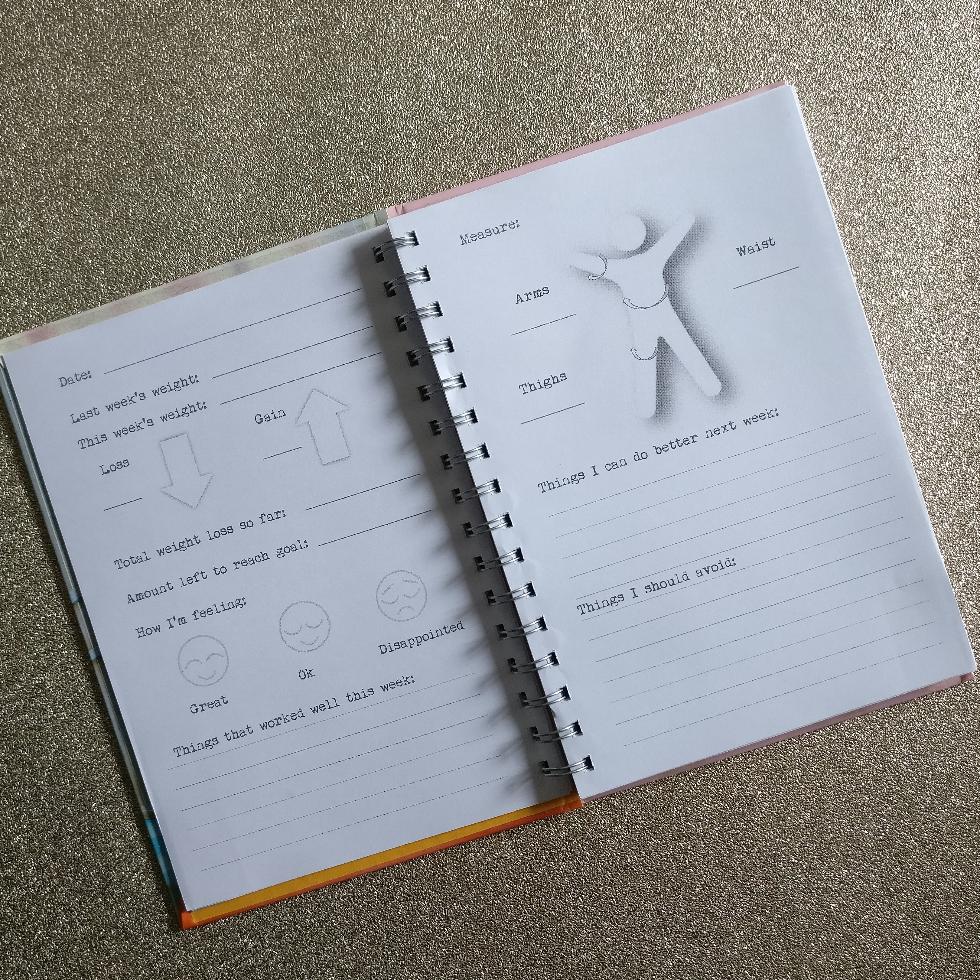 Date:
Last week's weight:
This week's weight:
Loss
Gain
Total weight loss so far:
Amount left to reach goal:
How I'm feeling:
Great
Ok
Disappointed
Things that worked well this week:
Measure:
Arms
Waist
Thighs
Things I can do better next week:
Things I should avoid: